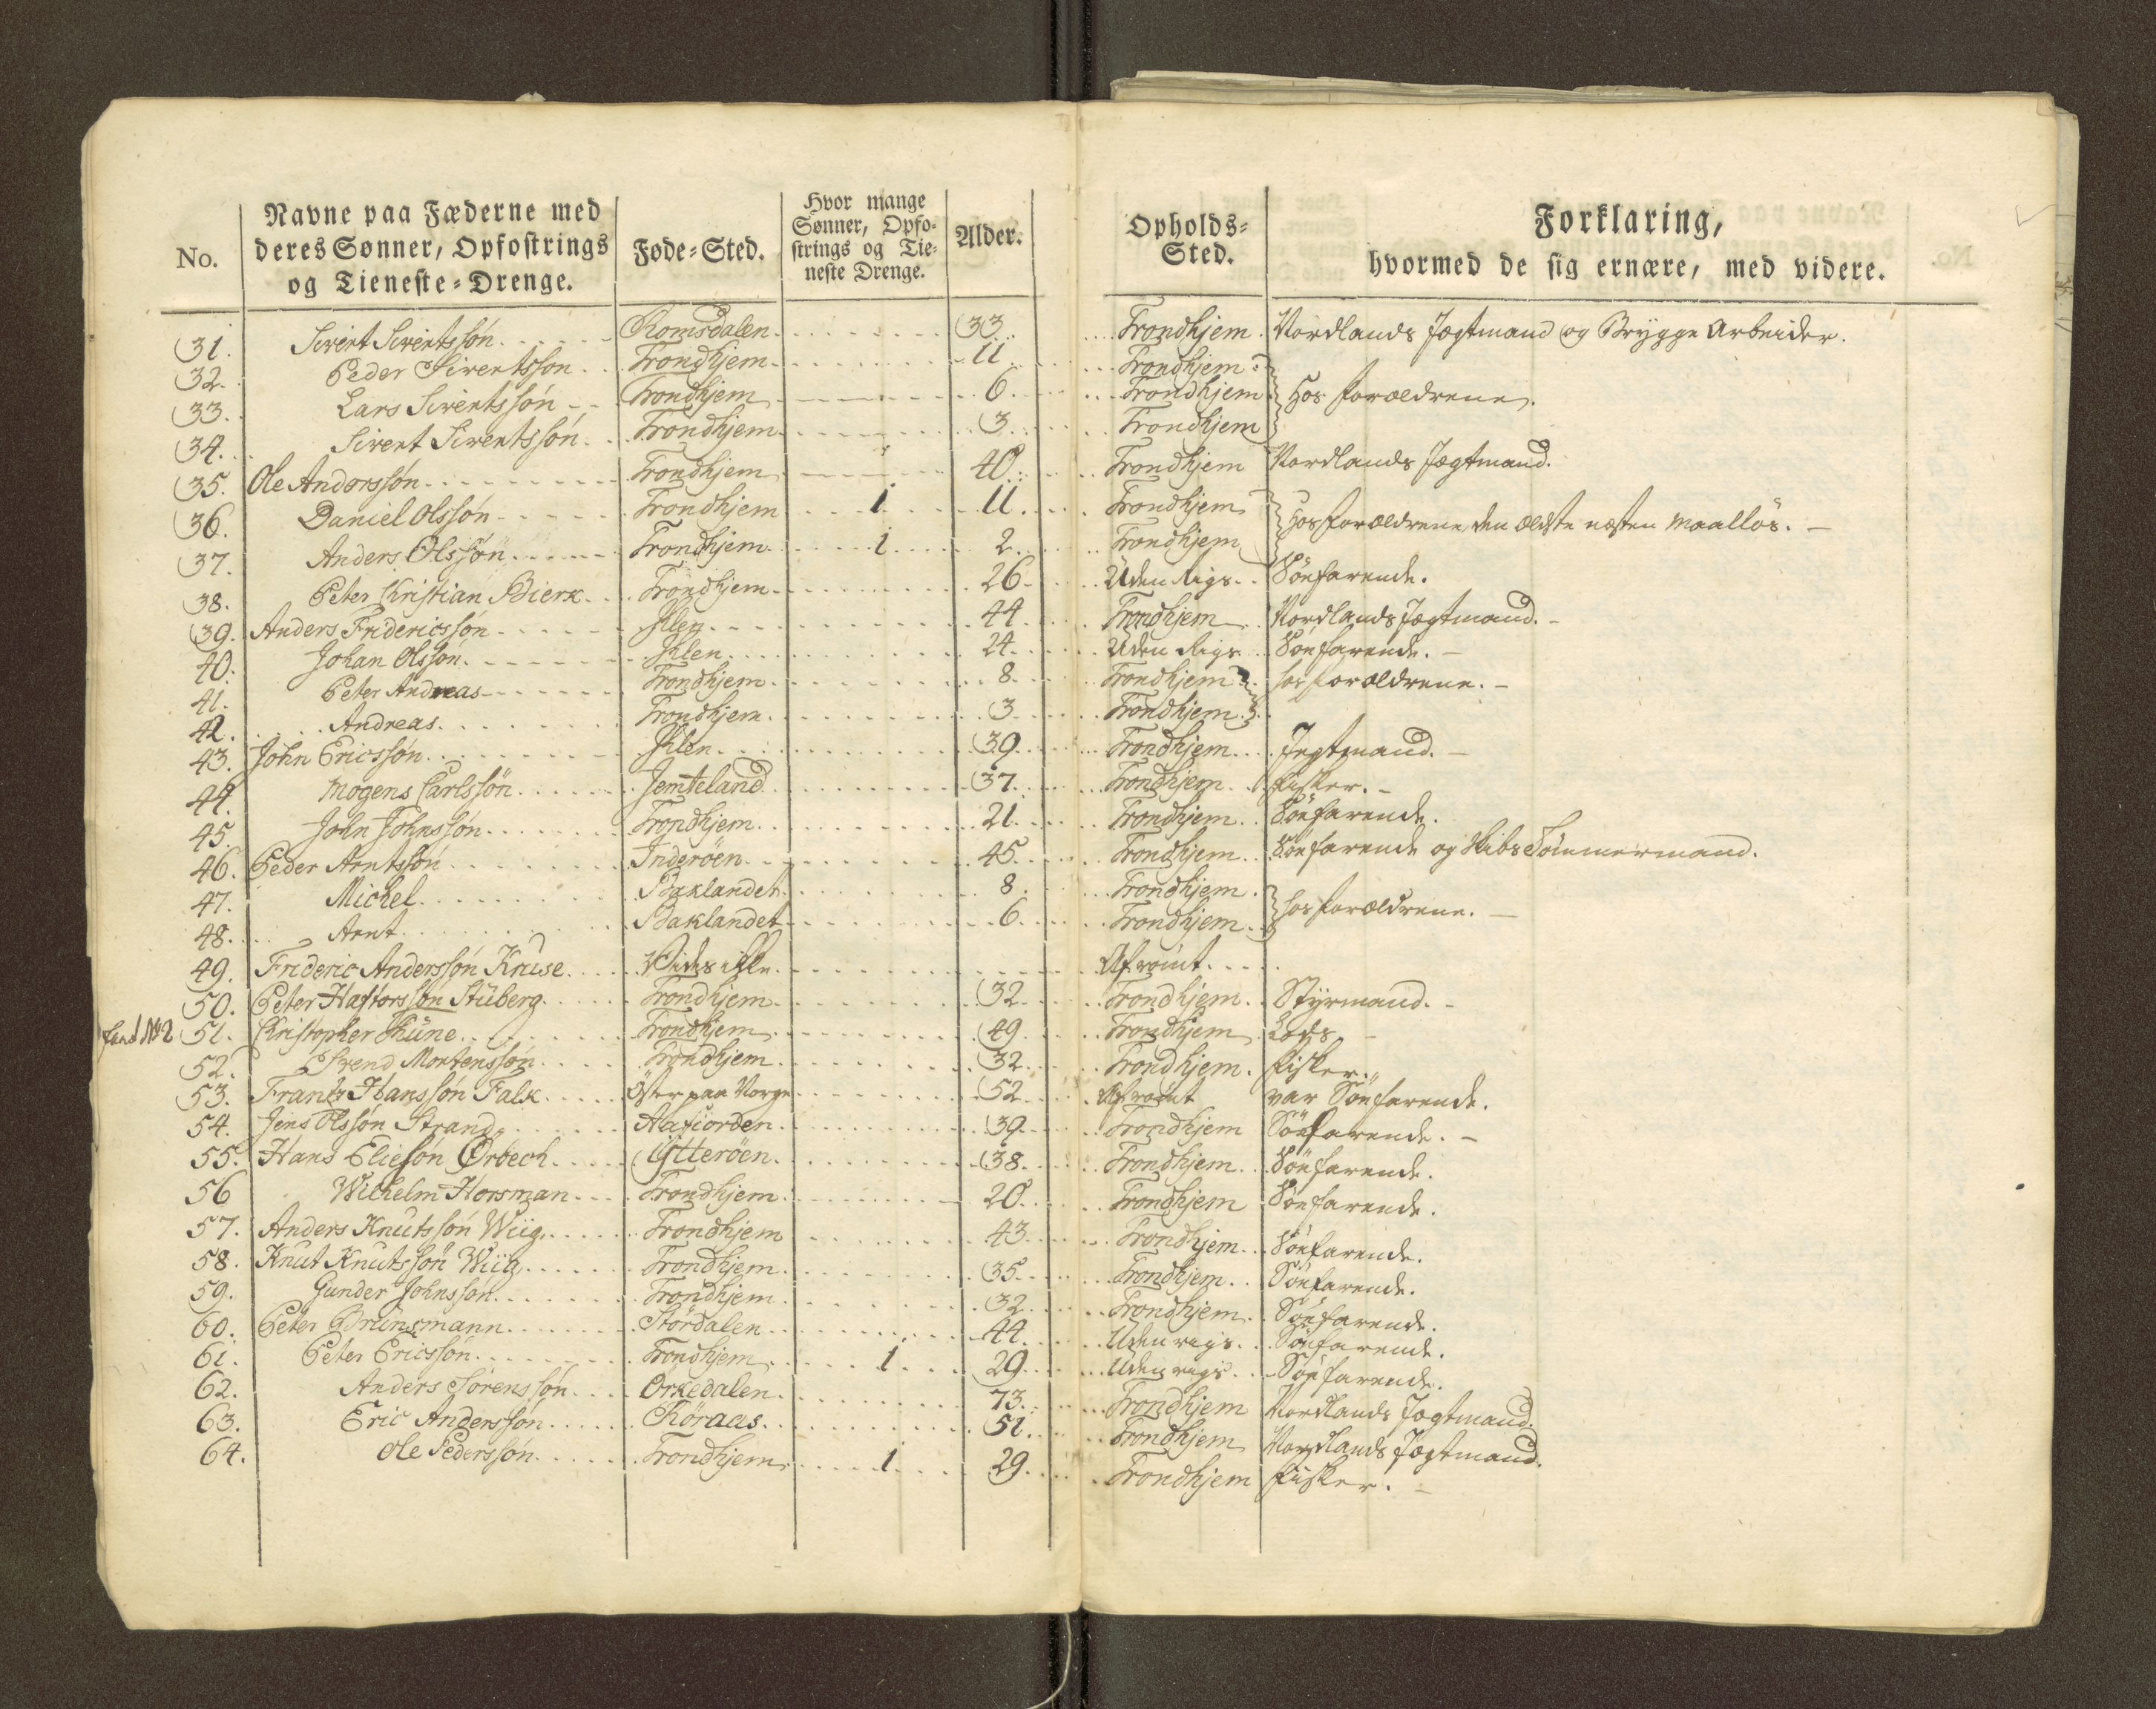 No. | Navne paa Fæderne med deres Sønner, Opfostrings og Tieneste-Drenge. | Føde-Sted. | Hvor mange Sønner, Opfostrings og Tieneste Drenge. | Alder. | Opholds-Sted. | Forklaring, hvormed de sig ernære, med videre.
31. Sivert Sivertssøn Romsdalen 33 Trondhjem Nordlands Jægtmand og Brygge Arbeider.
32. Peder Sivertssøn Trondhjem 11 Trondhjem
33. Lars Sivertssøn Trondhjem 6 Trondhjem Hos forældrene.
34. Sivert Sivertssøn Trondhjem 3 Trondhjem
35. Ole Anderssøn Trondhjem 40 Trondhjem Nordlands Jægtmand.
36. Daniel Olssøn Trondhjem 1 11 Trondhjem Hos forældrene den ældste næsten maalløs.
37. Anders Olssøn Trondhjem 1 2 Trondhjem
38. Peter Christian Bierk Trondhjem 26 Uden Rigs Söefarende.
39. Anders Fridericssøn Ihlen 44 Trondhjem Nordlands Jægtmand.
40. Johan Olssøn Ihlen 24 Uden Rigs Söefarende.
41. Peter Andreas Trondhjem 8 Trondhjem hos forældrene.
42. Andreas Trondhjem 3 Trondhjem
43. John Ericssøn Ihlen 39 Trondhjem Jægtmand.
44. Mogens Carlssøn Jemteland 37 Trondhjem fisker.
45. John Johnssøn Trondhjem 21 Trondhjem Söefarende.
46. Peder Arntssøn Inderöen 45 Trondhjem Söefarende og Skibs Tömmermand.
47. Michel Baklandet 8 Trondhjem hos forældrene.
48. Arnt Baklandet 6 Trondhjem
49. Frideric Anderssøn Kruse Vides ikke Afrömt
50. Peter Haftorssøn Stüberg Trondhjem 32 Trondhjem Styrmand.
51. Christopher Thüne Trondhjem 49 Trondhjem Lods
52. Svend Mortenssøn Trondhjem 32 Trondhjem fisker.
53. Frantz Hanssøn Falk Öster paa Norge 52 Afrömt var Söefarende.
54. Jens Olssøn Strand Aafiorden 39 Trondhjem Söefarende.
55. Hans Eliesøn Ørbech Ytteröen 38 Trondhjem Söefarende.
56 Wilhelm Horsman Trondhjem 20 Trondhjem Söefarende.
57. Anders Knutssøn Wiig Trondhjem 43 Trondhjem Söefarende.
58. Knut Knutssøn Wiig Trondhjem 35 Trondhjem Söefarende.
59. Gunder Johnssøn Trondhjem 32 Trondhjem Söefarende.
60. Peter Brünsmann Stördalen 44 Uden rigs Söefarende.
61. Peter Ericssøn Trondhjem 1 29 Uden rigs Söefarende.
62. Anders Sörenssøn Orkedalen 73 Trondhjem Nordlands Jægtmand.
63. Eric Anderssøn Röraas 51 Trondhjem Nordlands Jægtmand.
64. Ole Pederssøn Trondhjem 1 29 Trondhjem fisker.